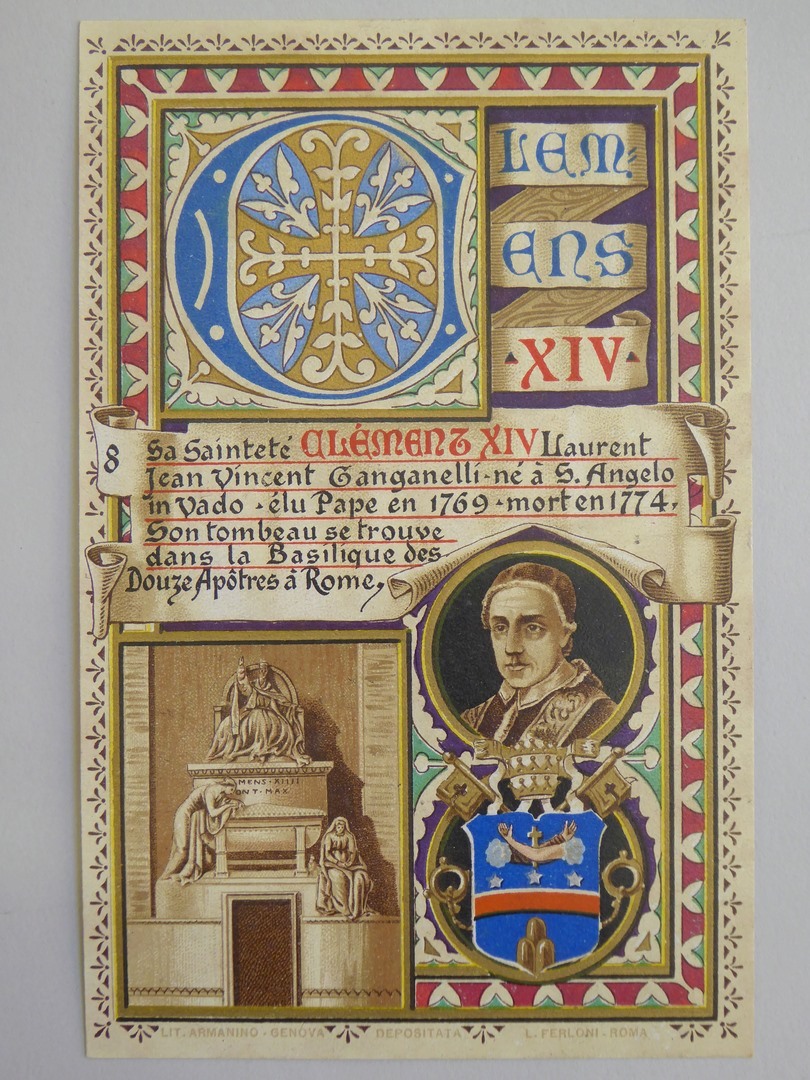 CLEM=
ENS
·XIV·
8
Sa Sainteté CLÉMENT XIV Laurent
Jean Vincent Ganganelli-né à S. Angelo
in Vado - élu Pape en 1769 - mort en 1774.
Son tombeau se trouve
dans la Basilique des
Douze Apôtres à Rome.
MENS·XIIII
ONT·MAX
LIT. ARMANINO - GENOVA DEPOSITATA L. FERLONI - ROMA